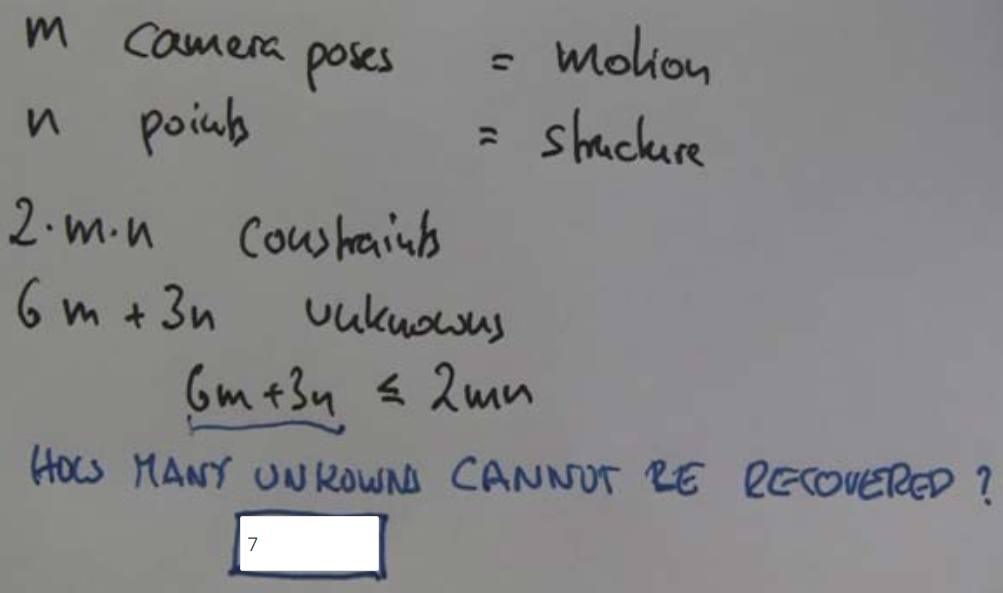 m camera poses = motion
n points = structure
2·m·n constraints
6m + 3n unknowns
6m+3n ≤ 2mn
HOW MANY UNKOWNS CANNOT BE RECOVERED?
7